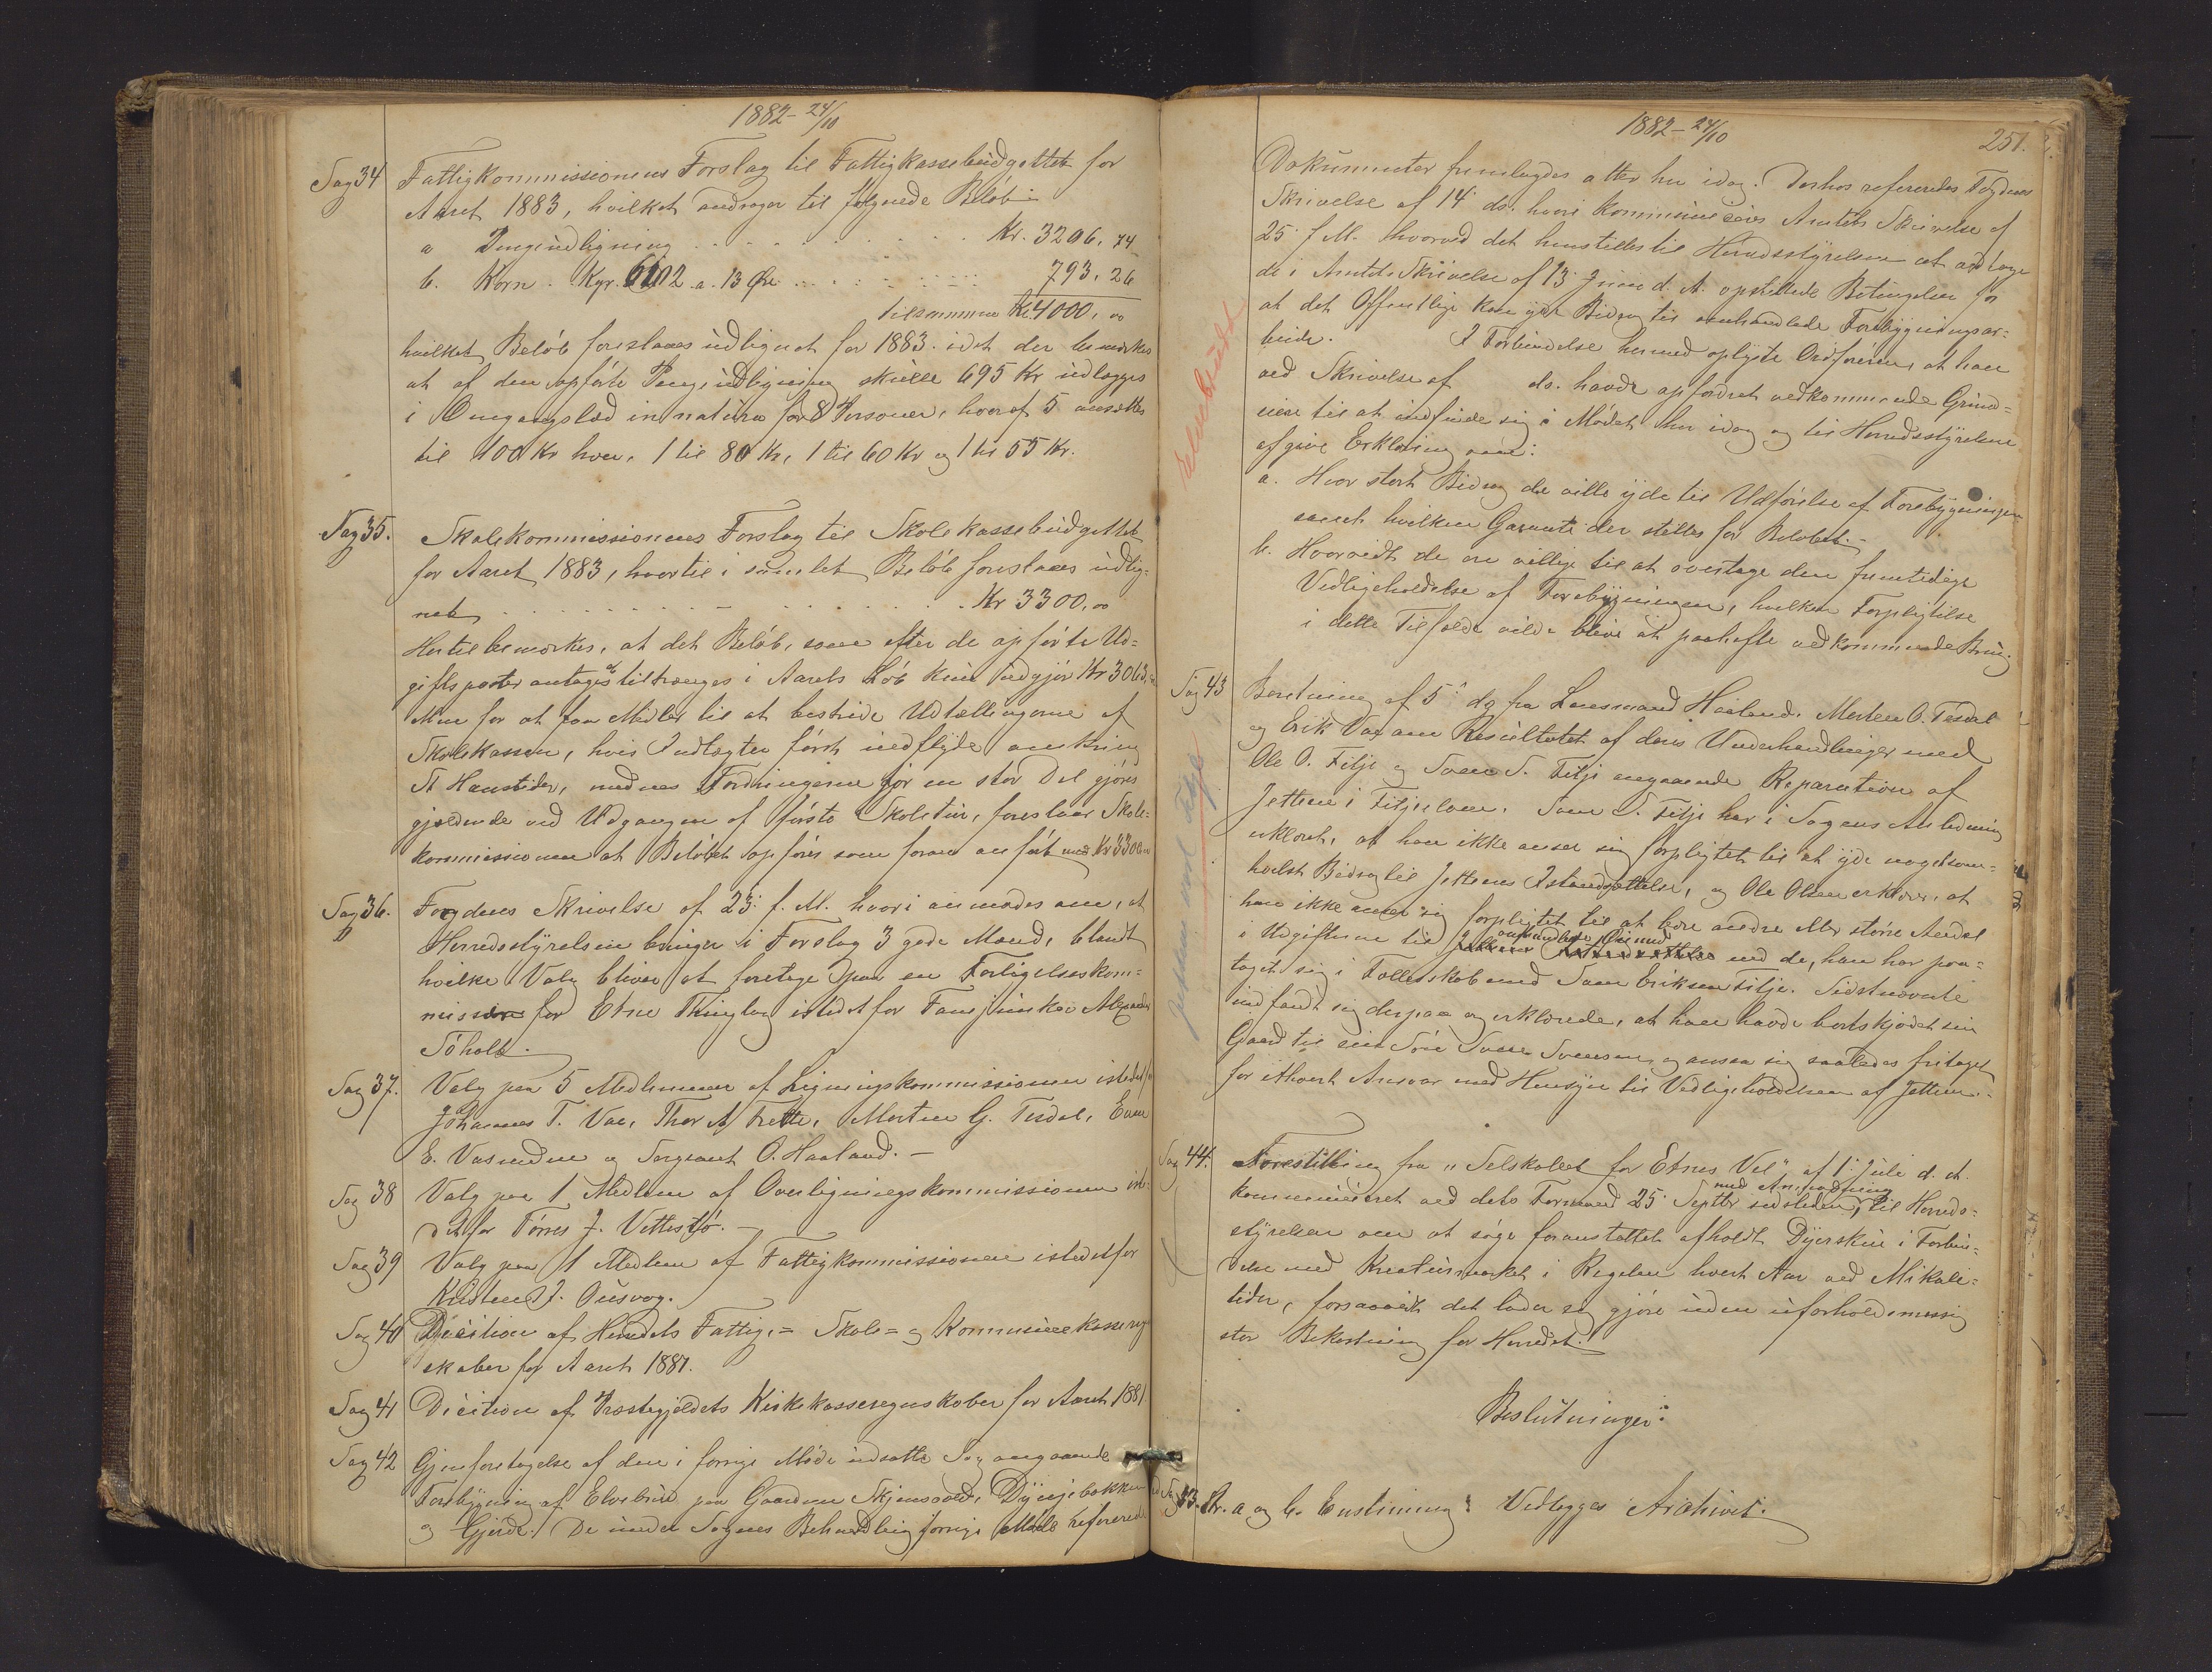 1882 - 24/10
Sag 34 Fattigkommissionens Forslag til Fattigkassebudgettet for
Aaret 1883, hvilket andrager til følgende Beløb:
a Pengeudligning Kr. 3206,74
b. Korn. Kgr. 6102 a. 13 Øre 793,26
tilsammen Kr. 4000,00
hvilket Beløb foreslaaes udlignet for 1883. idet der bemærkes
at af den opførte Pengeudligning skulle 695 Kr udlægges
i Omgangslæd in natura for 8 Personer, hvoraf 5 ansættes
til 100 Kr hver, 1 til 80 Kr, 1 til 60 Kr og 1 til 55 Kr.
Sag 35. Skolekommissionens Forslag til Skolekassebudgettet
for Aaret 1883, hvortil i samlet Beløb foreslaaes udlig-
net Kr 3300,00
Hertil bemærkes, at det Beløb, som efter de opførte Ud-
giftsposter antages at tiltrænges i Aarets Løb kun udgjør Kr 3063,
Men for at faa Midler til at bestride Udtællingerne af
Skolekassen, hvis Indtægter først indflyde omkring
St Hanstider, medens Fordringerne for en stor Del gjøres
gjældende ved Udgangen af første Skoletur, foreslaar Skole-
kommissionen at Beløbet opføres som foran anført med Kr 3300.00
Sag 36. Fogdens Skrivelse af 23. f. M. hvori anmodes om, at
Herredsstyrelsen bringer i Forslag 3 gode Mænd, blandt
hvilke Valg bliver at foretage paa en Forligelseskom-
missær for Etne Thinglag istedetfor Fanejunker Alexander
Tøholt.
Sag 37. Valg paa 5 Medlemmer af Ligningskommissionen istedetfor
Johannes T. Vae, Thor A Frette, Morten G. Tesdal, Enne
E. Vasenden og Sergeant O. Haaland. -
Sag 38 Valg paa 1 Medlem af Overligningskommissionen iste-
detfor Tørres J. Vettestø. -
Sag 39 Valg paa 1 Medlem af Fattigkommissionen istedetfor
Kristen J. Ousvog.
Sag 40 Decition af Herredets Fattig- Skole- og Kommunekasseregn
skaber for Aaret 1881.
Sag 41 Decition af Præstegjeldets Kirkekasseregnskaber for Aaret 1881
Sag 42 Gjenforetagelse af den i forrige Møde udsatte Sag angaaende
Forebygning af Elvebrud paa Gaardene Skjensvold, Dyngebakken
og Gjerde. De under Sagens Behandling forrige Møde refererede
1882 - 24/10 251.
Dokumenter fremlagdes atter her idag. Derhos refereredes Fogdens
Skrivelse af 14. ds. hvori kommuniceres Amtets Skrivelse af
25. f. M. hvorved det henstilles til Herredsstyrelsen at antage
de i Amtets Skrivelse af 13. Juni d. A. opstillede Betingelser for
at det Offentlige kan yde Bidrag til omhandlede Forebygningsar-
beide. I Forbindelse hermed oplyste Ordføreren, at han
ved Skrivelse af ds. havde opfordret vedkommende Grund-
eiere til at indfinde sig i Mødet her idag og til Herredsstyrelsen
afgive Erklæring om:
a. Hvor stort Bidrag de ville yde til Udførelse af Forebygningen
samt hvilken Garanti der stilles for Beløbet. -
b. Hvorvidt de ere villige til at overtage den fremtidige
Vedligeholdelse af Forebygningen, hvilken Forpligtelse
i dette Tilfælde vilde blive at paahefte vedkommende Brug
Elvebrud
Sag 43 Beretning af 5. dg fra Lensmand Haaland, Morten O. Tesdal
og Erik Vae om Resultatet af deres Underhandlinger med
Ole O. Fitje og Svenn S. Fitje angaaende Reparation af
Jetteen i Fitjeelven. Svenn S. Fitje har i Sagens Anledning
erklæret, at han ikke anser sig forpligtet til at yde nogetsom-
helst Bidrag til Jetteens Istandsættelse, og Ole Olsen erklærer, at
han ikke anser sig forpligtet til at bære andre eller større Andel
i Udgifterne til omhandlede Øiemed end de, han har paa-
taget sig i Fællesskab med Svenn Eriksen Fitje. Sidstnævnte
indfandt sig derpaa og erklærede, at han havde bortskjødet sin
Gaard til sin Søn Svenn Svensen, og ansaa sig saaledes fritaget
for ethvert Ansvar med Hensyn til Vedligeholdelsen af Jetteen. -
Sag 44. Forestilling fra "Selskabet for Etnes Vel" af 1. Juli d. A.
kommuniceret ved dets Formand 25. Septbr sidstleden, med Anmodning til Herreds-
styrelsen om at søge foranstaltet afholdt Dyrskue i Forbin-
delse med Kreaturmarked i Regelen hvert Aar ved Mikali-
tider, forsaavidt det lader sig gjøre uden uforholdsmæssig
stor Bekostning for Herredet.
Beslutninger:
Sag 33. Litr. a og b. Enstemmig: Vedlægges Archivet.